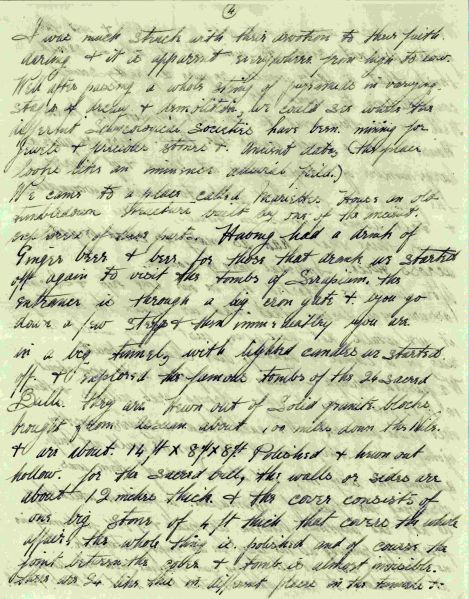 4
I was much struck with their devotion to their faith
daring & it is apparent everywhere from high to low.
Well after passing a whole string of pyramids in varying
stages of decay & demolition, we could see where the
different Societies have been mining for
Jewels & precious stones & Ancient data, (the place
looks like an immense mining field.)
We came to a place called Mariettes House an old
structure built by one of the
explorers of these parts. Having had a drink of
Ginger beer & beer for those that drink we started
off again to visit the tombs of Serapium. the
entrance is through a big iron gate & you go
down a few steps & then immediatley you are
in a big tunnel, with lighted candles we started
off & explored the famous tombs of the 24 sacred
Bulls. they are hewn out of Solid granite blocks
brought from about 600 miles down the Nile.
& are about 14 ft X 8 ft X 8 ft Polished & hewn out
hollow. for the Sacred bull, the walls or sides are
about 12 inchs thick & the cover consists of
one big stone of 4 ft thick that covers the whole
affair. the whole thing is polished and of course the
joint between the cover & tomb is almost invisible.
there are 24 like this in different place in the tunnels &